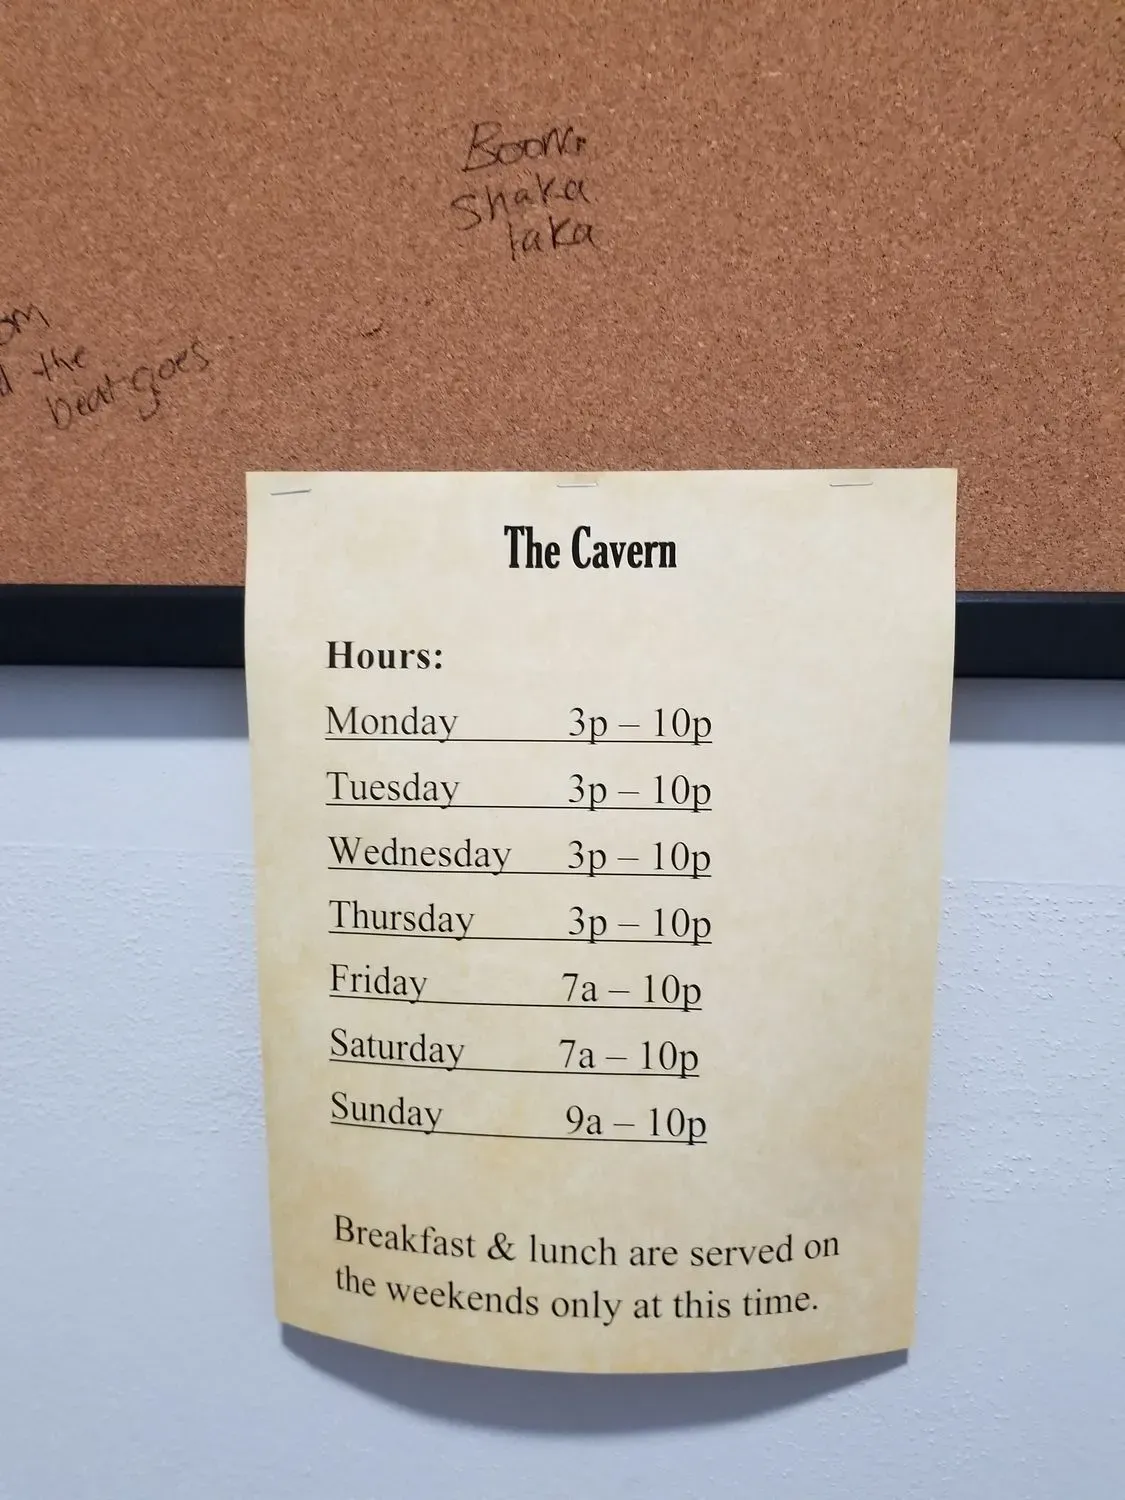 Boom
Shaka
laka
the
beat goes
The Cavern
Hours:
Monday 3p – 10p
Tuesday 3p – 10p
Wednesday 3p – 10p
Thursday 3p – 10p
Friday 7a – 10p
Saturday 7a – 10p
Sunday 9a – 10p
Breakfast & lunch are served on
the weekends only at this time.